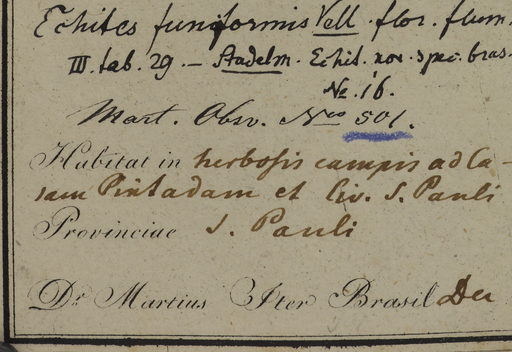 Echites funiformis Vell. flor. flum.
III. tab. 29. — Stadelm. Echit. nov. spec. bras.
No. 16.
Mart. Obsv. Nro 501.
Habitat in herbosis campis ad Ca-
sam Pintadam et Civ. S. Pauli
Provinciae S. Pauli
Dr Martius Iter Brasil